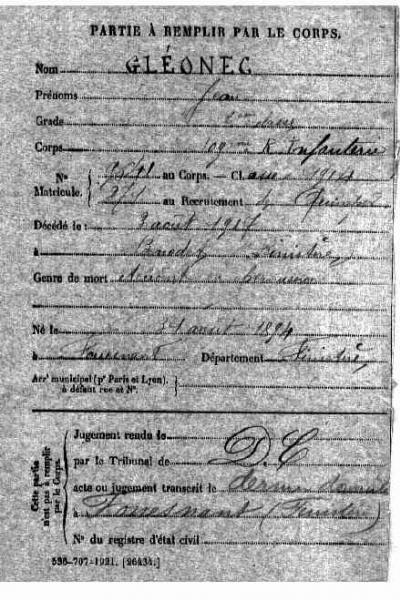 PARTIE À REMPLIR PAR LE CORPS.
Nom GLÉONEC
Prénoms Jean
Grade 2ème classe
Corps Infanterie
N° Matricule. au Corps. — Classe 1914
au Recrutement Quimper
Décédé le : 3 août 1917
à Bénodet Finistère
Genre de mort
Né le 21 août 1894
à Fouesnant Département Finistère
Arr' municipal (p' Paris et Lyon),
à défaut rue et N°.
Cette partie
n'est pas à remplir
par le Corps.
Jugement rendu le
par le Tribunal de D.C
acte ou jugement transcrit le dernier domicile
à Fouesnant (Finistère)
N° du registre d'état civil
536-707-1921. [26434.]